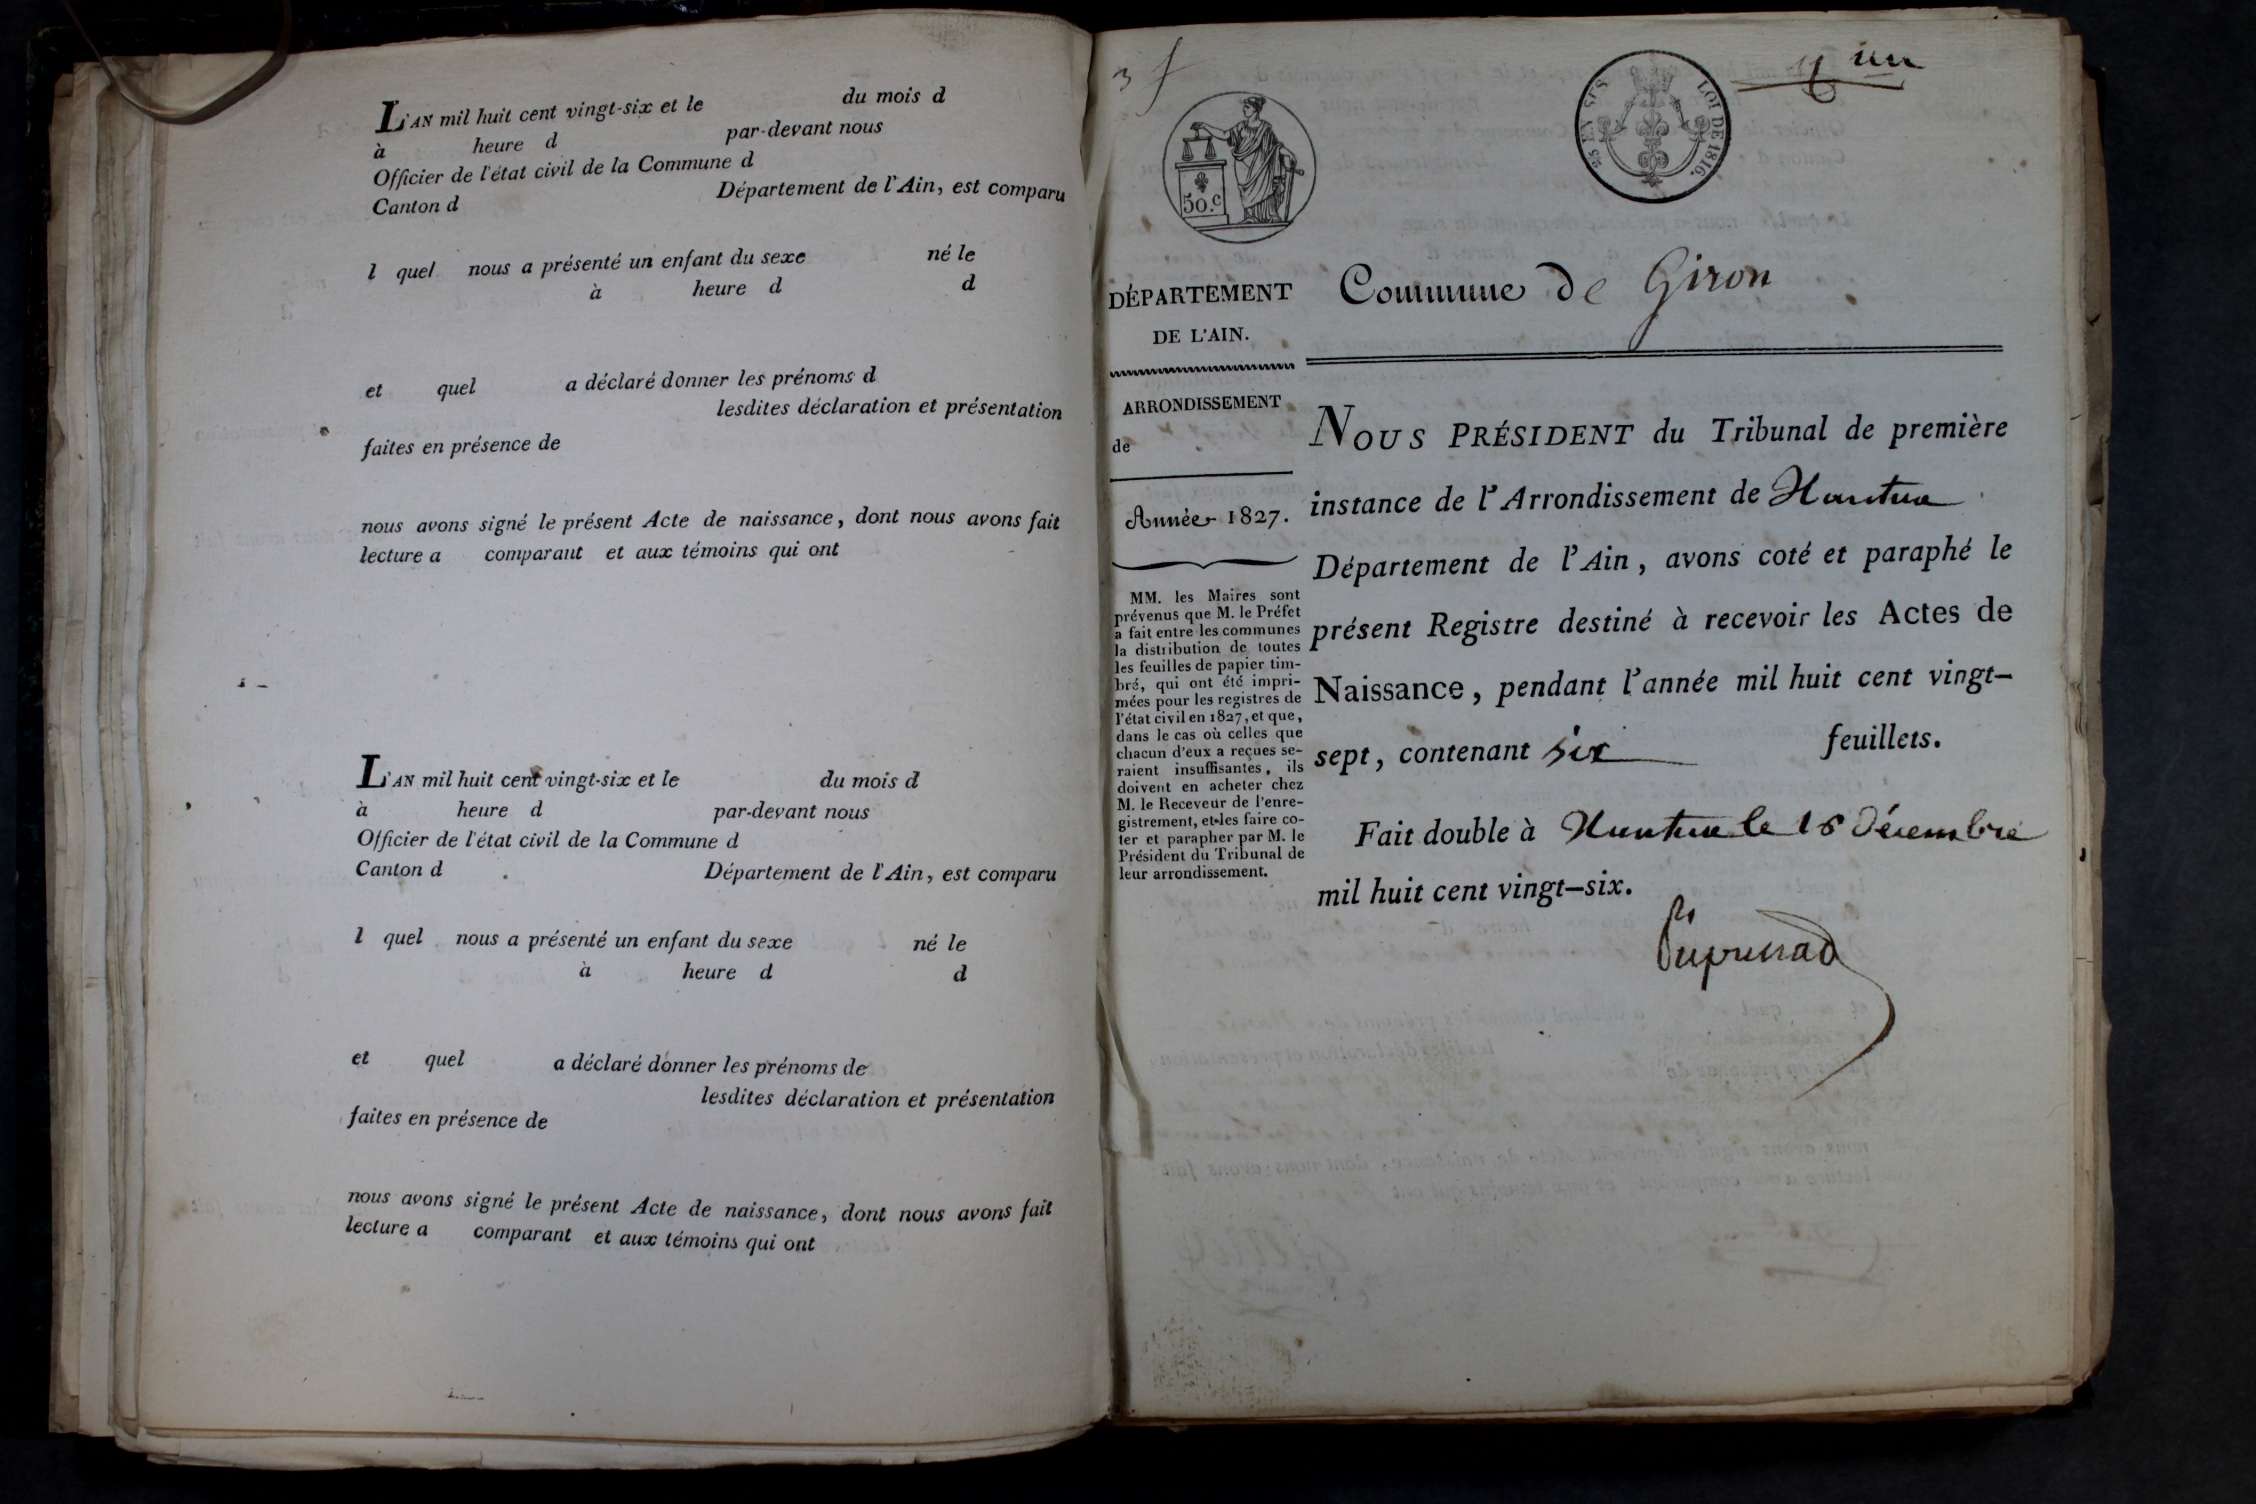 L'AN mil huit cent vingt-six et le du mois d
à heure d par-devant nous
Officier de l'état civil de la Commune d
Canton d Département de l'Ain, est comparu
l quel nous a présenté un enfant du sexe né le
à heure d d
et quel a déclaré donner les prénoms d
lesdites déclaration et présentation
faites en présence de
nous avons signé le présent Acte de naissance, dont nous avons fait
lecture a comparant et aux témoins qui ont
L'AN mil huit cent vingt-six et le du mois d
à heure d par-devant nous
Officier de l'état civil de la Commune d
Canton d Département de l'Ain, est comparu
l quel nous a présenté un enfant du sexe né le
à heure d d
et quel a déclaré donner les prénoms de
lesdites déclaration et présentation
faites en présence de
nous avons signé le présent Acte de naissance, dont nous avons fait
lecture a comparant et aux témoins qui ont
3 f
50.c
LOI DE 1816.
DÉPARTEMENT
DE L'AIN.
ARRONDISSEMENT
de
Année 1827.
MM. les Maires sont
prévenus que M. le Préfet
a fait entre les communes
la distribution de toutes
les feuilles de papier tim-
bré, qui ont été impri-
mées pour les registres de
l'état civil en 1827, et que,
dans le cas où celles que
chacun d'eux a reçues se-
raient insuffisantes, ils
doivent en acheter chez
M. le Receveur de l'enre-
gistrement, et les faire co-
ter et parapher par M. le
Président du Tribunal de
leur arrondissement.
Commune de Giron
NOUS PRÉSIDENT du Tribunal de première
instance de l'Arrondissement de Nantua
Département de l'Ain, avons coté et paraphé le
présent Registre destiné à recevoir les Actes de
Naissance, pendant l'année mil huit cent vingt-
sept, contenant six feuillets.
Fait double à Nantua le 16 Décembre
mil huit cent vingt-six.